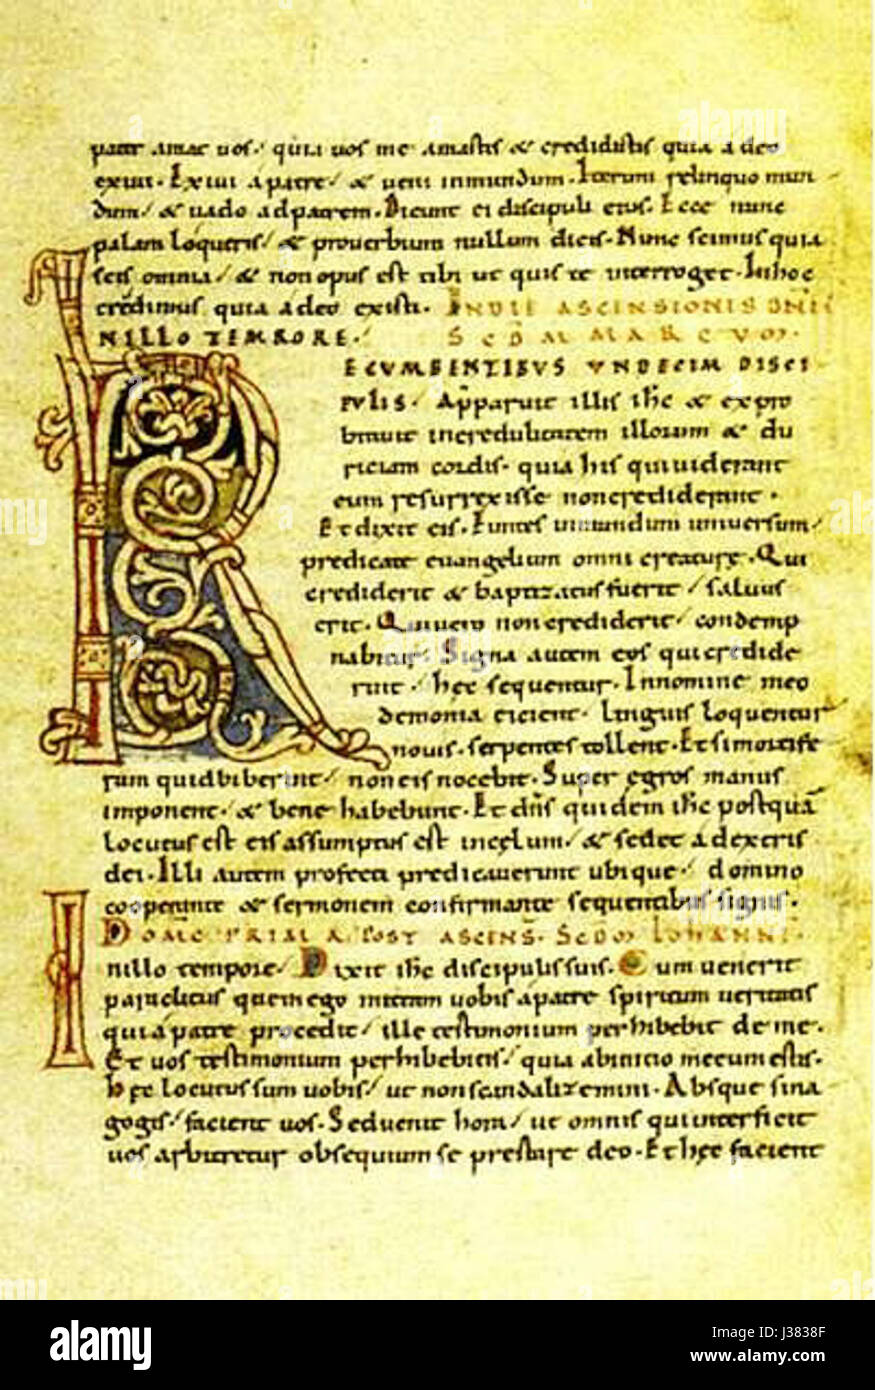 pater amat uos, quia uos me amastis & credidistis quia a deo
exiui. Exiui a patre, & ueni in mundum. Iterum relinquo mun
dum, & uado ad patrem. Dicunt ei discipuli eius. Ecce nunc
palam loqueris, & prouerbium nullum dicis. Nunc scimus quia
scis omnia, & non opus est tibi ut quis te interroget. In hoc
credimus quia a deo existi. IN DIE ASCENSIONIS DNI
N ILLO TEMPORE. SCDM MARCUM.
RECUMBENTIBUS UNDECIM DISCI
PULIS. Apparuit illis ihc & expro
brauit incredulitatem illorum & du
riciam cordis. quia his qui uiderant
eum resurrexisse non crediderant.
Et dixit eis. Euntes in mundum uniuersum,
predicate euangelium omni creaturę. Qui
crediderit & baptizatus fuerit, saluus
erit. Qui uero non crediderit, condemp
nabitur. Signa autem eos qui credide
rint, hęc sequentur. In nomine meo
demonia eicient. linguis loquentur
nouis. serpentes tollent. Et si mortife
rum quid biberint, non eis nocebit. Super ęgros manus
imponent, & bene habebunt. Et dns quidem ihc postquā
locutus est eis assumptus est in cęlum, & sedet a dextris
dei. Illi autem profecti predicauerunt ubique, domino
cooperante & sermonem confirmante sequentibus signis.
DOMC PRIMA POST ASCENS. SCDM IOHANN.
I
nillo tempore, Dixit ihc discipulis suis. Cum uenerit
paraclitus quem ego mittam uobis a patre spiritum ueritatis
qui a patre procedit, ille testimonium perhibebit de me.
Et uos testimonium perhibebitis, quia ab initio mecum estis.
Hęc locutus sum uobis, ut non scandalizemini. Absque sina
gogis, facient uos. Sed uenit hora, ut omnis qui interficit
uos arbitretur obsequium se prestare deo. Et hęc facient
alamy
alamy stock photo
J3838F
www.alamy.com